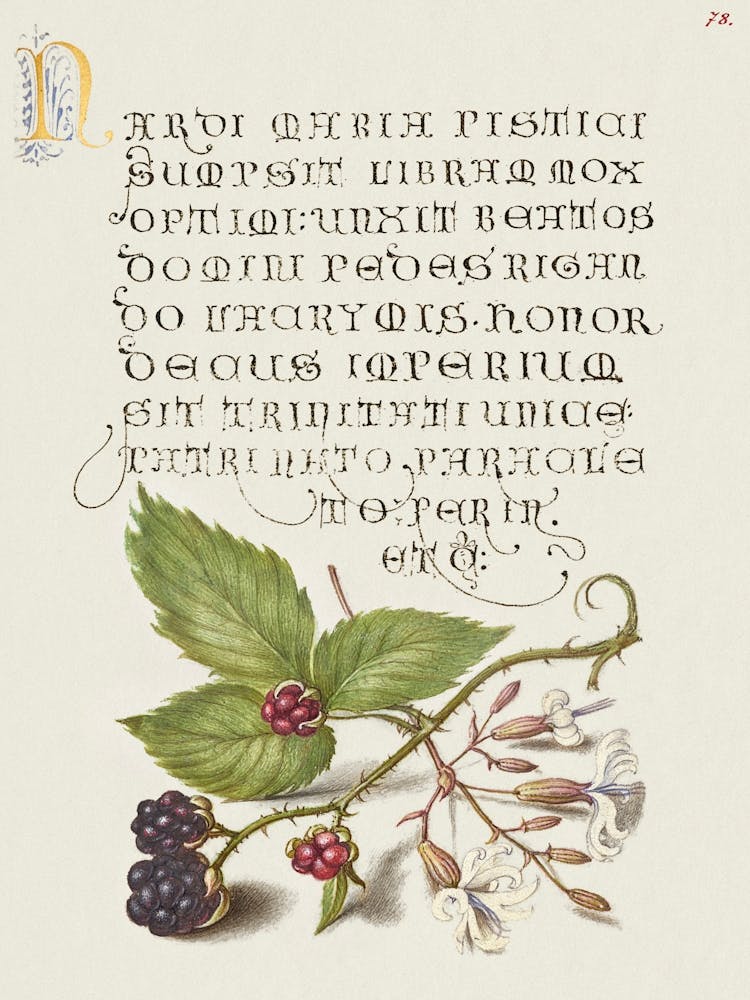 78.
NARDI MARIA PISTICI
SUMPSIT LIBRAM MOX
OPTIMI: UNXIT BEATOS
DOMINI PEDES RIGAN
DO LACRYMIS. HONOR
DECUS IMPERIUM
SIT TRINITATI UNICE:
PATRI NATO, PARACLE
TO: PER IN.
ET Q: